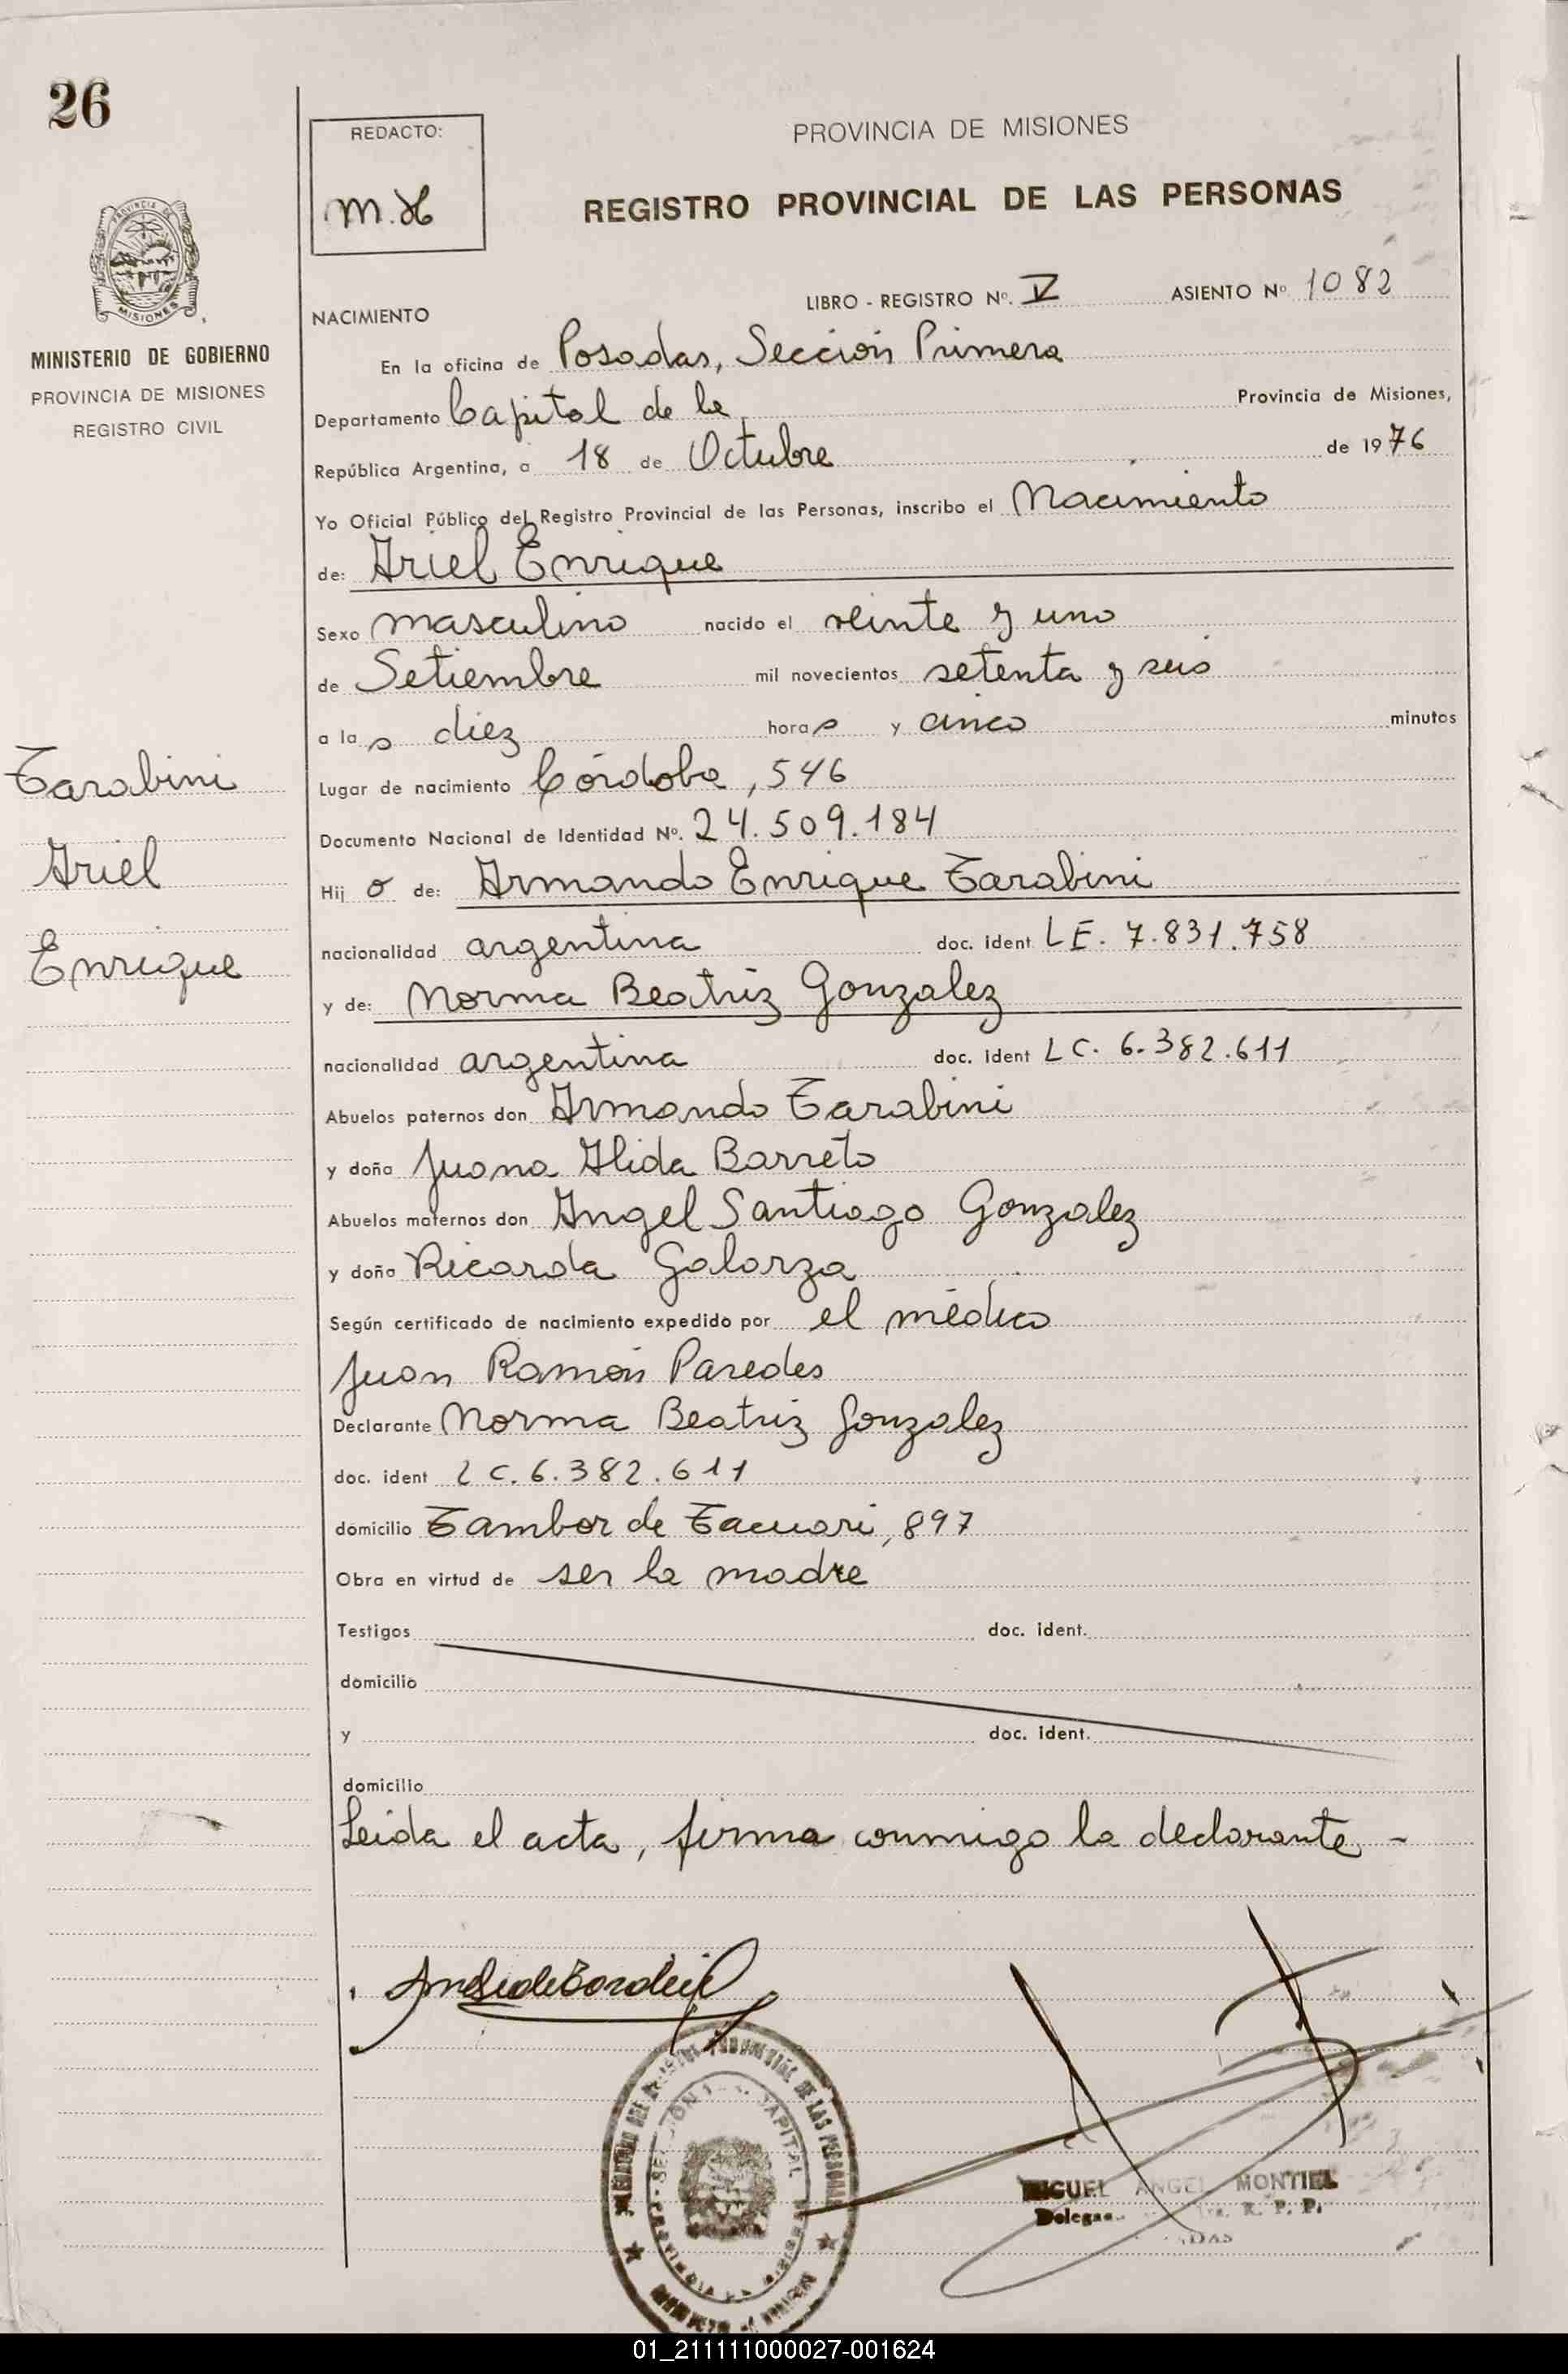 26
REDACTO:
M.H
PROVINCIA DE MISIONES
REGISTRO PROVINCIAL DE LAS PERSONAS
PROVINCIA DE
MISIONES
MINISTERIO DE GOBIERNO
PROVINCIA DE MISIONES
REGISTRO CIVIL
NACIMIENTO LIBRO - REGISTRO Nº. V ASIENTO Nº 1082
En la oficina de Posadas, Sección Primera
Departamento Capital de la Provincia de Misiones,
República Argentina, a 18 de Octubre de 1976
Yo Oficial Público del Registro Provincial de las Personas, inscribo el Nacimiento
de: Ariel Enrique
Sexo masculino nacido el veinte y uno
de Setiembre mil novecientos setenta y seis
a la s diez hora s y cinco minutos
Tarabini
Ariel
Enrique
Lugar de nacimiento Córdoba, 546
Documento Nacional de Identidad Nº. 24.509.184
Hij o de: Armando Enrique Tarabini
nacionalidad argentina doc. ident LE. 7.831.758
y de: Norma Beatriz Gonzalez
nacionalidad argentina doc. ident LC. 6.382.611
Abuelos paternos don Armando Tarabini
y doña Juana Alida Barreto
Abuelos maternos don Angel Santiago Gonzalez
y doña Ricarda Galarza
Según certificado de nacimiento expedido por el médico
Juan Ramón Paredes
Declarante Norma Beatriz Gonzalez
doc. ident LC. 6.382.611
domicilio Tambor de Tacuari, 897
Obra en virtud de ser la madre
Testigos doc. ident.
domicilio
y doc. ident.
domicilio
Leida el acta, firma conmigo la declarante -
DE LAS PERSONAS
CAPITAL
MIGUEL ANGEL MONTIEL
R. P. P.
01_211111000027-001624